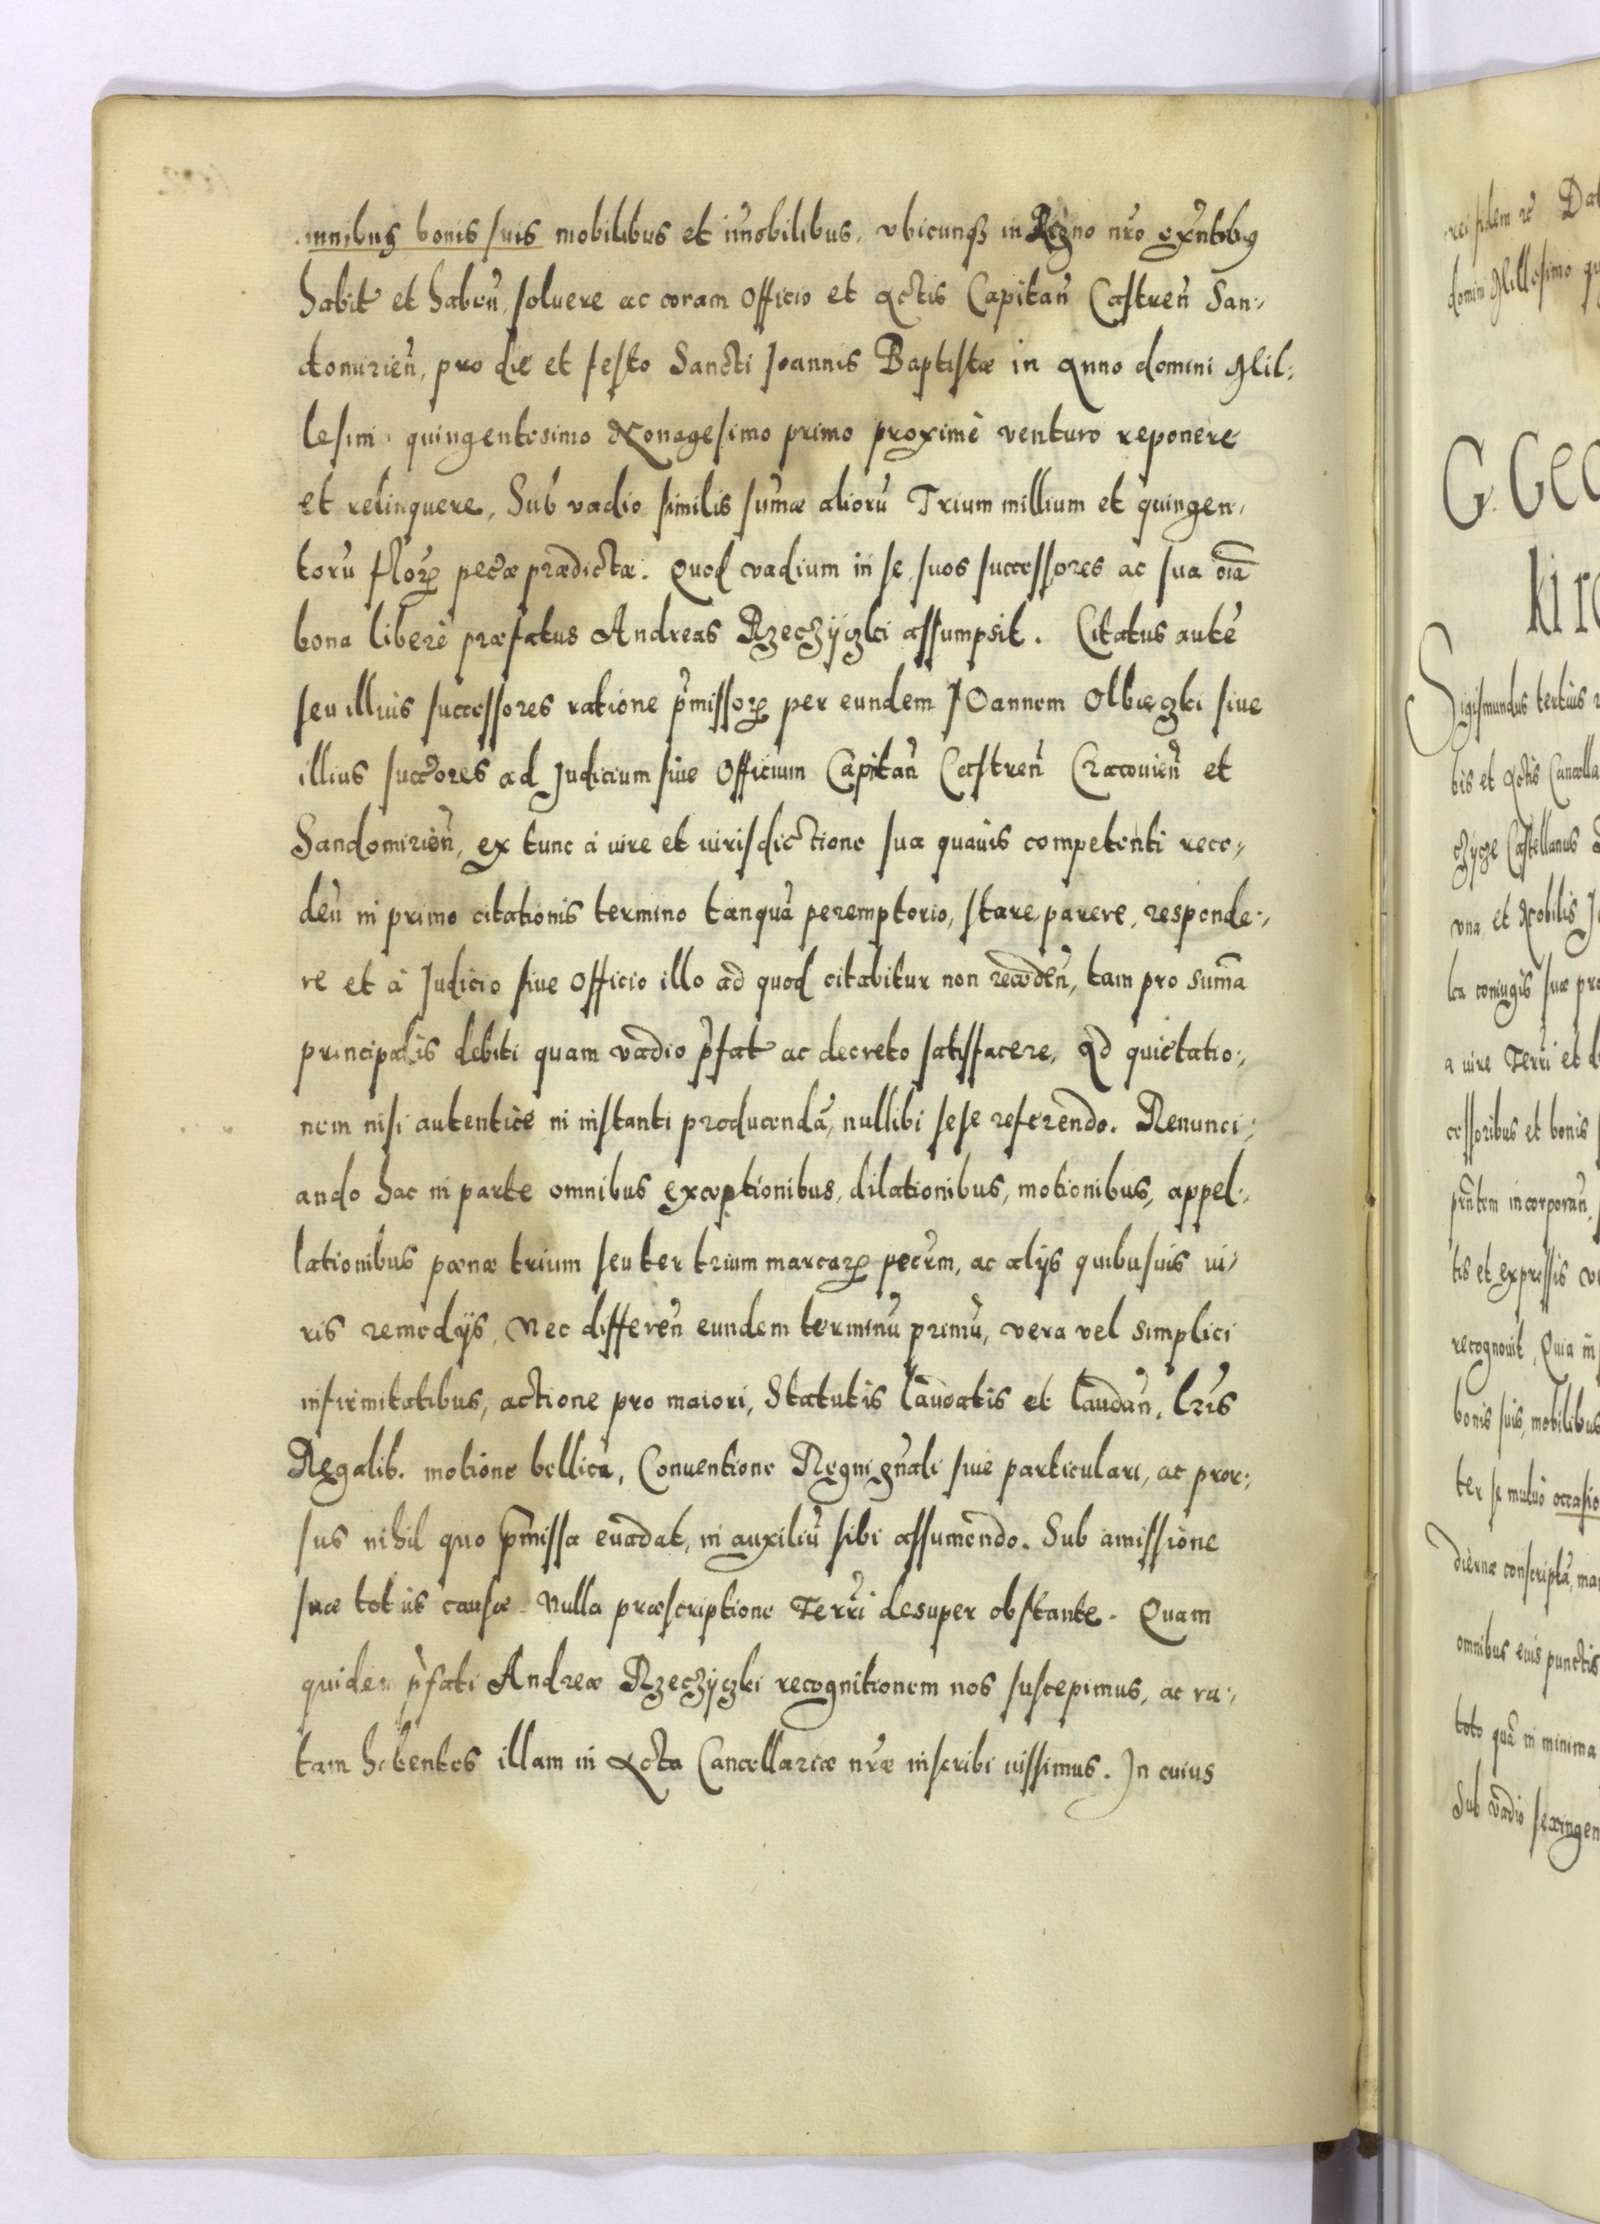 omnibus bonis suis mobilibus et im̃obilibus, vbicunqꝫ in Regno nr̃o exñtibus
habit et habeñ, soluere ac coram Officio et Actis Capitañ Castreñ San-
domirieñ, pro die et festo Sancti Joannis Baptistæ in Anno domini Mil-
lesimo quingentesimo Nonagesimo primo proximè venturo reponere
et relinquere, Sub vadio similis sum̃æ aliorũ Trium millium et quingen-
torũ floꝝ pec̃æ prædictæ. Quod vadium in se, suos successores ac sua oĩa
bona liberè præfatus Andreas Rzeczÿczki assumpsit. Citatus autẽ
seu illius successores ratione p̃missoꝝ per eundem JOannem Olbięzki siue
illius succ̃ores ad Judicium siue Officium Capitañ Castreñ Cracouieñ et
Sandomirieñ, ex tunc à iure et iurisdictione sua quauis competenti rece-
deñ in primo citationis termino tanquã peremptorio, stare, parere, responde-
re et à Judicio siue Officio illo ad quod citabitur non recedeñ, tam pro sum̃a
principalis debiti quam vadio p̃fat ac decreto satisfacere, Ad quietatio-
nem nisi autenticè in instanti producendã, nullibi sese referendo. Renunci-
ando hac in parte omnibus exceptionibus, dilationibus, motionibus, appel-
lationibus pœnæ trium seu ter trium marcaꝝ pecum, ac alijs quibusuis iu-
ris remedÿs, Nec differeñ eundem terminũ primũ, vera vel simplici
infirmitatibus, actione pro maiori, Statutis laudatis et laudañ, lr̃is
Regalib. motione bellica, Conuentione Regni gñali siue particulari, ac pror-
sus nihil quo p̃missa euadat, in auxiliũ sibi assumendo. Sub amissione
suæ totius causæ. Nulla præscriptione Terr̃i desuper obstante. Quam
quidem p̃fati Andreæ Rzeczÿczki recognitionem nos suscepimus, ac ra-
tam habentes illam in Acta Cancellariæ nr̃æ inscribi iussimus. In cuius
rei fidem
domini Millesimo
Sigismundus tertius
bis et Actis Cancella
czÿcze Castellanus
vna et Nobilis
coniugis suæ pro
a iure Terr̃i et
cessoribus et bonis
pr̃ntem incorporañ
tis et expressis
recognouit, Quia
bonis suis, mobilibus
ter se mutuò occasio
diernæ conscriptã, ma
omnibus eius punctis
toto quã in minima
Sub vadio sexingen